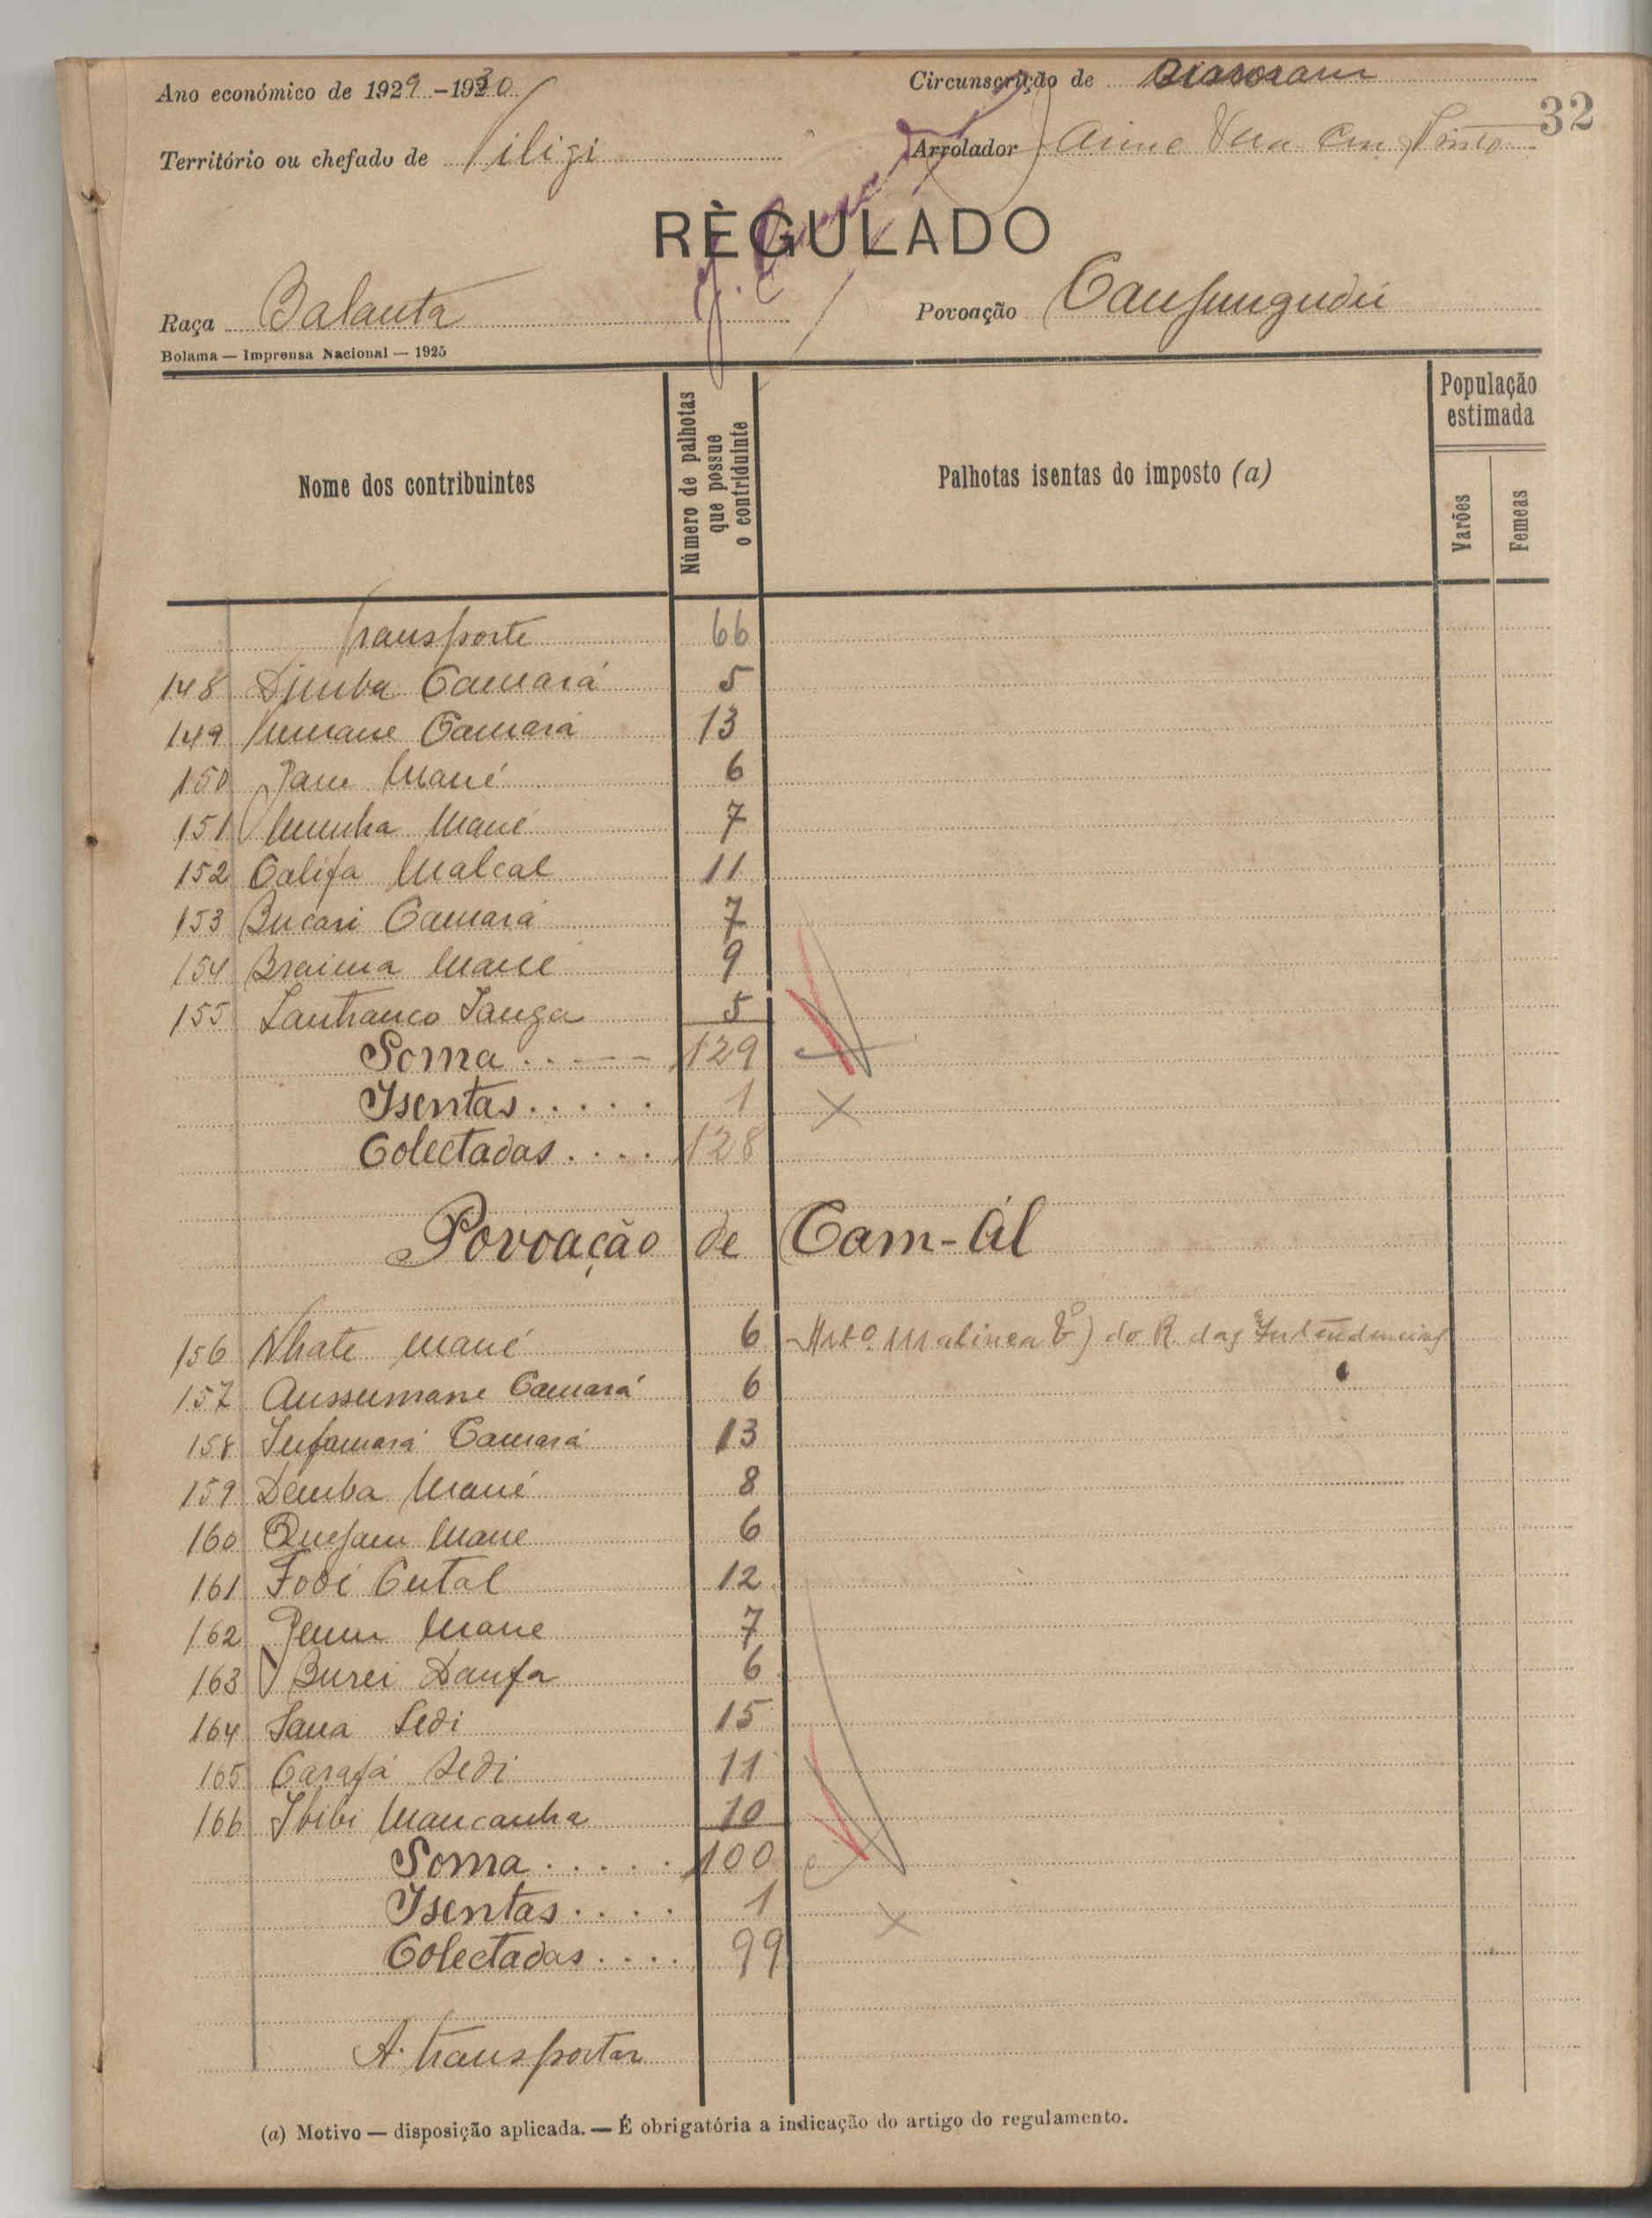 Ano económico de 1929-1930
Circunscrição de
32
Território ou chefado de Tiligi
Arrolador Vera Cruz Pinto
RÈGULADO
Raça Balanta
Povoação Canfungudú
Bolama — Imprensa Nacional — 1925
Nome dos contribuintes
Número de palhotas que possue o contriduinte
Palhotas isentas do imposto (a)
População estimada
Varões
Femeas
Transporte 66
148 Djimba Camará 5
149 Camará 13
150 Jam Mané 6
151 Mané 7
152 Califa Malcal 11
153 Bucari Camará 7
154 Braima Mané 9
155 Lantranco Sanga 5
Soma . . --- 129
Isentas . . . . . 1
Colectadas . . . . 128
Povoação de Cam-Ál
156 Nhate Mané 6 - Artº 111 alinea b) do R. das Intendencias
157 Aussumane Camará 6
158 Infamará Camará 13
159 Demba Mané 8
160 Quefam Mané 6
161 Fodé Cutal 12
162 Mané 7
163 Burei Danfa 6
164 Sana Sedi 15
165 Carafá Sedi 11
166 Ibibi Mancanha 10
Soma . . . . . 100
Isentas . . . . 1
Colectadas . . . . 99
A transportar
(a) Motivo — disposição aplicada. — É obrigatória a indicação do artigo do regulamento.